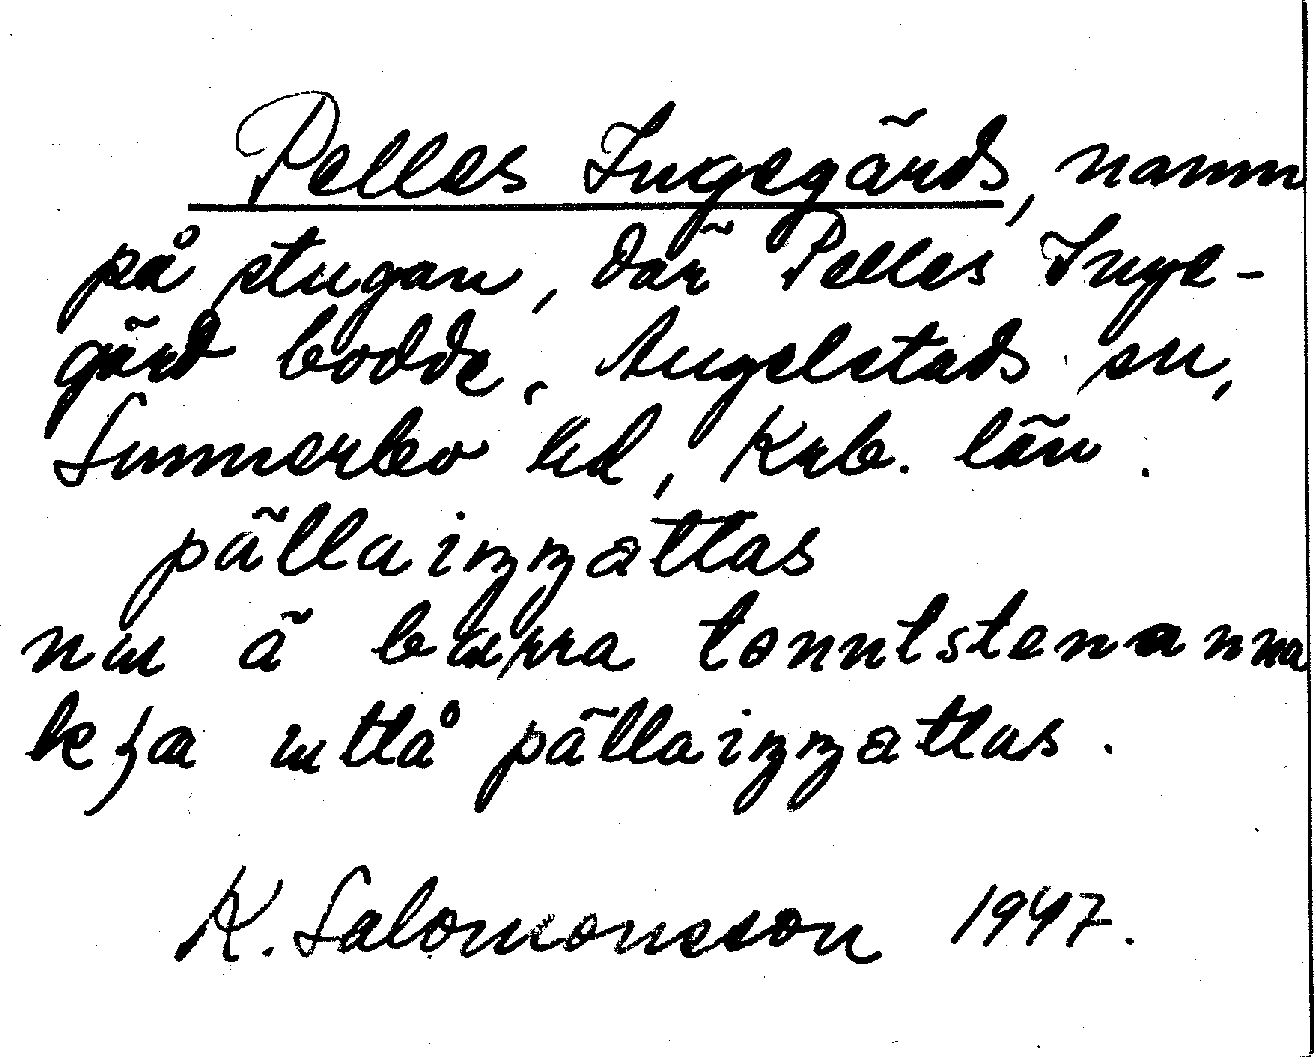 Pelles Ingegärds, namn
på stugan, där Pelles Inge-
gärd bodde. Angelstads sn,
Sunnerbo hd, Krb. län.
pälla iŋŋəttas
nɯ ä bɯrra tonntstenanna
keɟa ɯttå pälla iŋŋəttas.
K. Salomonsson 1947.